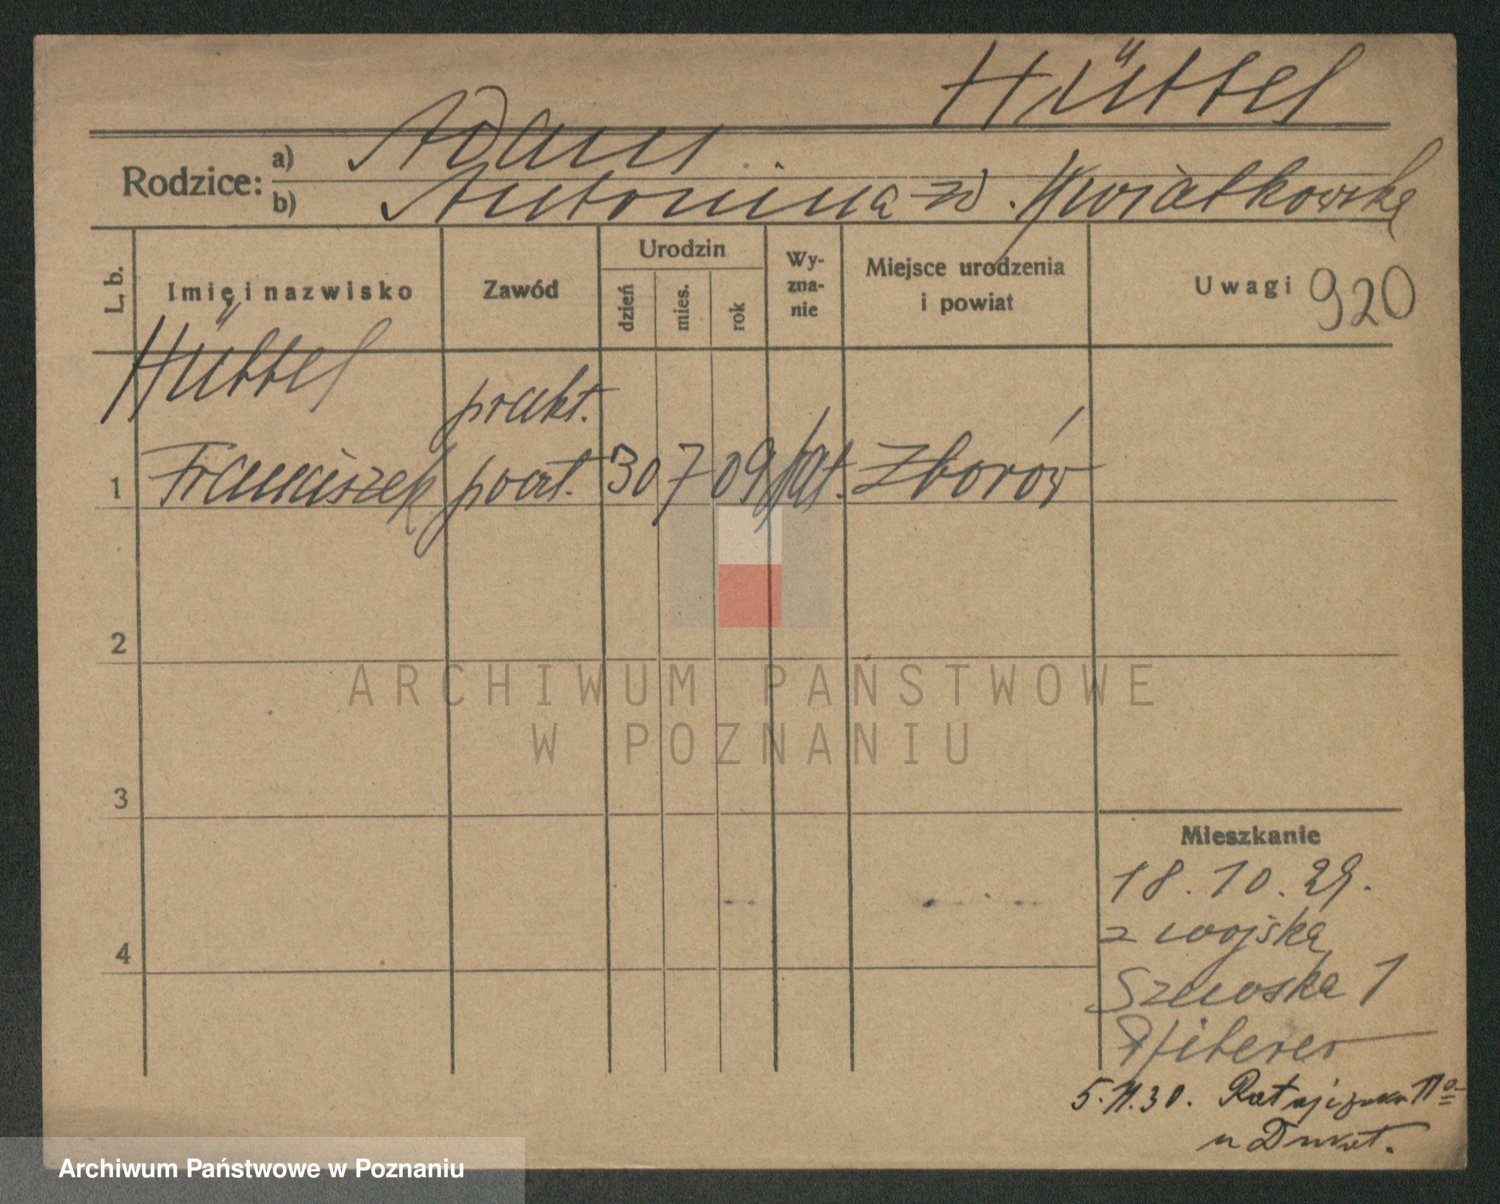 Hüttel
Rodzice: a) Adam
b) Antonina zd. Kwiatkowska
L. b. Imię i nazwisko Zawód Urodzin dzień mies. rok Wy-zna-nie Miejsce urodzenia i powiat Uwagi 920
Hüttel prakt.
1 Franciszek poczt. 30 7 09 kat. Zborów
2
3
4
Mieszkanie
18.10.29.
z wojska
Szewska 1
5.11.30. Ratajczaka 11a
u
ARCHIWUM PAŃSTWOWE
W POZNANIU
Archiwum Państwowe w Poznaniu